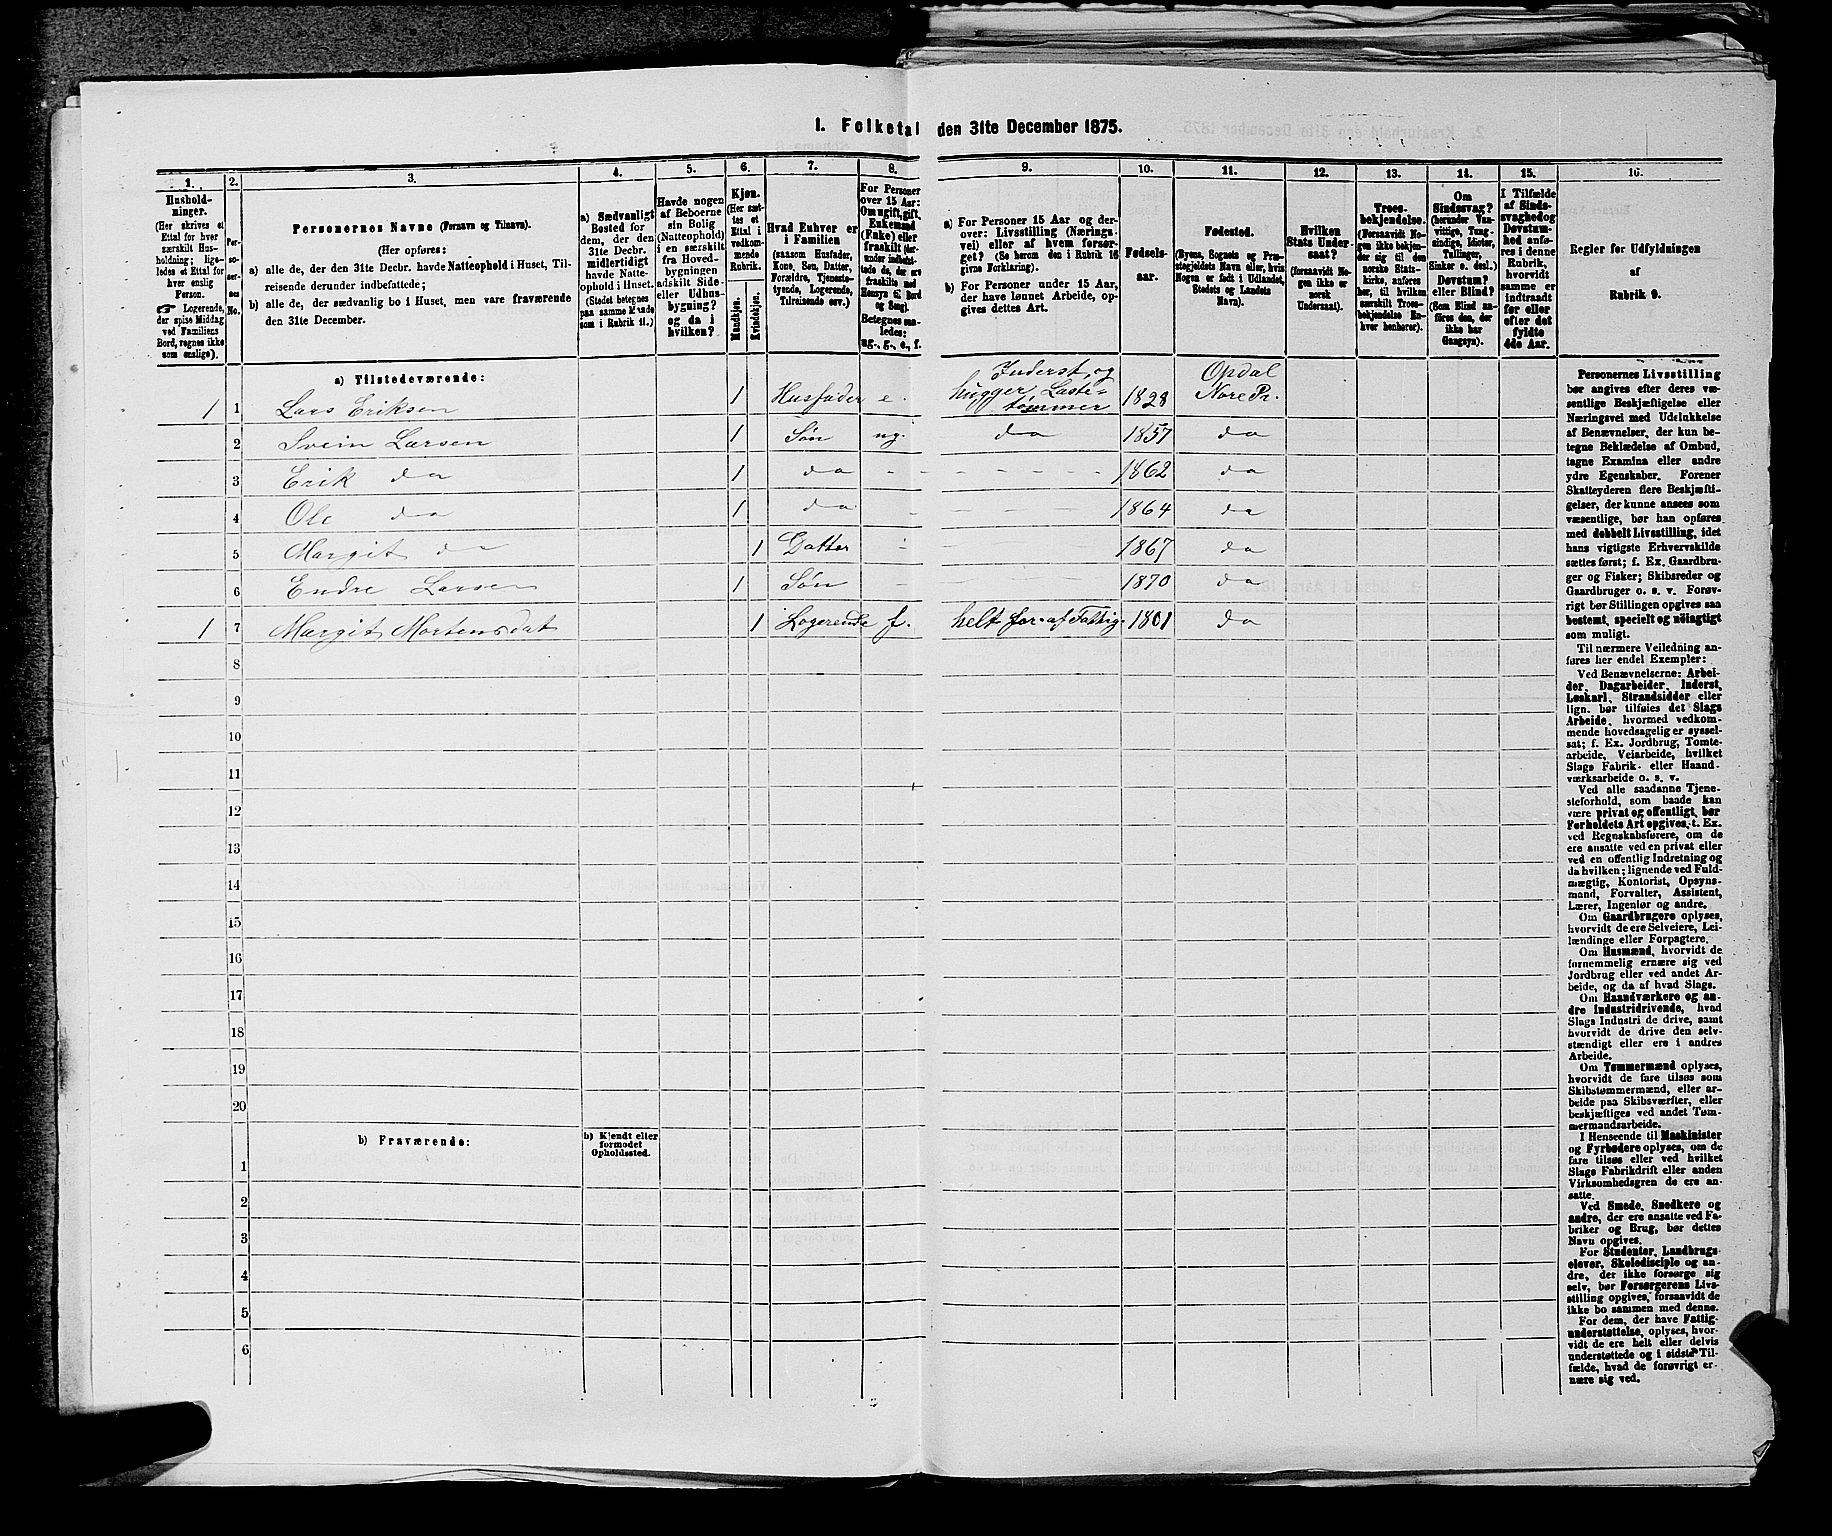 1. Folketal den 31te December 1875.
1.
Husholdninger.
(Her skrives et
Ettal for hver
særskilt Hus-
holdning; lige-
ledes et Ettal for
hver enslig
Person.
Logerende,
der spise Middag
ved Familiens
Bord, regnes ikke
som enslige).
2.
Personernes No.
3.
Personernes Navne (Fornavn og Tilnavn).
(Her opføres:
a) alle de, der den 31te Decbr. havde Natteophold i Huset, Til-
reisende derunder indbefattede;
b) alle de, der sædvanlig bo i Huset, men vare fraværende
den 31te December.
4.
a) Sædvanligt
Bosted for
dem, der den
31te Decbr.
midlertidigt
havde Natte-
ophold i Huset.
(Stedet betegnes
paa samme Maade
som i Rubrik 11.)
5.
Havde nogen
af Beboerne
sin Bolig
(Natteophold)
i en særskilt
fra Hoved-
bygningen
adskilt Side-
eller Udhus-
bygning?
og da i
hvilken?
6.
Kjøn.
(Her sæt-
tes et
Ettal i
vedkom-
mende
Rubrik.
Mandkjøn.
Kvindekjøn.
7.
Hvad Enhver er
i Familien
(saasom Husfader,
Kone, Søn, Datter,
Forældre, Tjeneste-
tyende, Logerende,
Tilreisende osv.)
8.
For Personer
over 15 Aar:
Om ugift, gift,
Enkemand
(Enke) eller
fraskilt
Betegnes saa-
ledes:
ug., g., e., f.
9.
a) For Personer 15 Aar og der-
over: Livsstilling (Nærings-
vei) eller af hvem forsør-
get. (Se herom den i Rubrik 16
givne Forklaring).
b) For Personer under 15 Aar,
der have lønnet Arbeide, op-
gives dettes Art.
10.
Fødsels-
aar.
11.
Fødested.
(Byens, Sognets og Præ-
stegjeldets Navn eller, hvis
Nogen er født i Udlandet,
Stedets og Landets
Navn).
12.
Hvilken
Stats Under-
saat?
(forsaavidt No-
gen ikke er
norsk
Undersaat).
13.
Troes-
bekjendelse.
(Forsaavidt No-
gen ikke bekjen-
der sig til den
norske Stats-
kirke, anføres
her, til hvilken
særskilt Troes-
bekjendelse En-
hver henhører).
14.
Om
Sindssvag?
(herunder Van-
vittige, Tung-
sindige, Idioter,
Tullinger,
Sinker o. desl.)
Døvstum?
eller Blind?
(Som Blind an-
føres den, der
ikke har
Gangsyn).
15.
I Tilfælde
af Sinds-
svaghed og
Døvstum-
hed anfø-
res i denne
Rubrik,
hvorvidt
samme er
indtraadt
før eller
efter det
fyldte
4de Aar.
16.
Regler for Udfyldningen
af
Rubrik 9.
a) Tilstedeværende:
1 1 Lars Eriksen 1 Husfader e. Inderst, og hugger Lastetømmer 1828 Opdal Nore Pr.
2 Svein Larsen 1 Søn ug. do 1857 do
3 Erik do 1 do - - - - - 1862 do
4 Ole do 1 do - - - - 1864 do
5 Margit do 1 Datter - - - 1867 do
6 Endre Larsen 1 Søn 1870 do
1 7 Margit Mortensdat 1 Logerende f. helt for. af Fattig. 1801 do
8
9
10
11
12
13
14
15
16
17
18
19
20
b) Fraværende:
b) Kjendt eller
formodet
Opholdssted.
1
2
3
4
5
6
Personernes Livsstilling
bør angives efter deres væ-
sentlige Beskjæftigelse eller
Næringsvei med Udelukkelse
af Benævnelser, der kun be-
tegne Beklædelse af Ombud,
tagne Examina eller andre
ydre Egenskaber. Forener
Skatteyderen flere Beskjæfti-
gelser, der kunne ansees som
væsentlige, bør han opføres
med dobbelt Livsstilling, idet
hans vigtigste Erhvervskilde
sættes først; f. Ex. Gaardbru-
ger og Fisker; Skibsreder og
Gaardbruger o. s. v. Forøv-
rigt bør Stillingen opgives saa
bestemt, specielt og nøiagtigt
som muligt.
Til nærmere Veiledning an-
føres her endel Exempler:
Ved Benævnelserne: Arbei-
der, Dagarbeider, Inderst,
Løskarl, Strandsidder eller
lign. bør tilføies det Slags
Arbeide, hvormed vedkom-
mende hovedsagelig er syssel-
sat; f. Ex. Jordbrug, Tomte-
arbeide, Veiarbeide, hvilket
Slags Fabrik- eller Haand-
værksarbeide o. s. v.
Ved alle saadanne Tjene-
steforhold, som baade kan
være privat og offentligt, bør
Forholdets Art opgives, t. Ex.
ved Regnskabsførere, om de
ere ansatte ved en privat eller
ved en offentlig Indretning og
da hvilken; lignende ved Fuld-
mægtig, Kontorist, Opsyns-
mand, Forvalter, Assistent,
Lærer, Ingeniør og andre.
Om Gaardbrugere oplyses,
hvorvidt de ere Selveiere, Lei-
lændinge eller Forpagtere.
Om Husmænd, hvorvidt de
fornemmelig ernære sig ved
Jordbrug eller ved andet Ar-
beide, og da af hvad Slags.
Om Haandværkere og an-
dre Industridrivende, hvad
Slags Industri de drive, samt
hvorvidt de drive den selv-
stændigt eller ere i andres
Arbeide.
Om Tømmermænd oplyses,
hvorvidt de fare tilsøs som
Skibstømmermænd, eller ar-
beide paa Skibsværfter, eller
beskjæftiges ved andet Tøm-
mermandsarbeide.
I Henseende til Maskinister
og Fyrbødere oplyses, om de
fare tilsøs eller ved hvilket
Slags Fabrikdrift eller anden
Virksomhedsgren de ere an-
satte.
Ved Smede, Snedkere og
andre, der ere ansatte ved Fa-
briker og Brug, bør dettes
Navn opgives.
For Studenter, Landbrugs-
elever, Skoledisciple og an-
dre, der ikke forsørge sig
selv, bør Forsørgerens Livs-
stilling opgives, forsaavidt de
ikke bo sammen med denne.
For dem, der have Fattig-
understøttelse, oplyses, hvor-
vidt de ere helt eller delvis
understøttede og i sidste Til-
fælde, hvad de forøvrigt er-
nære sig ved.